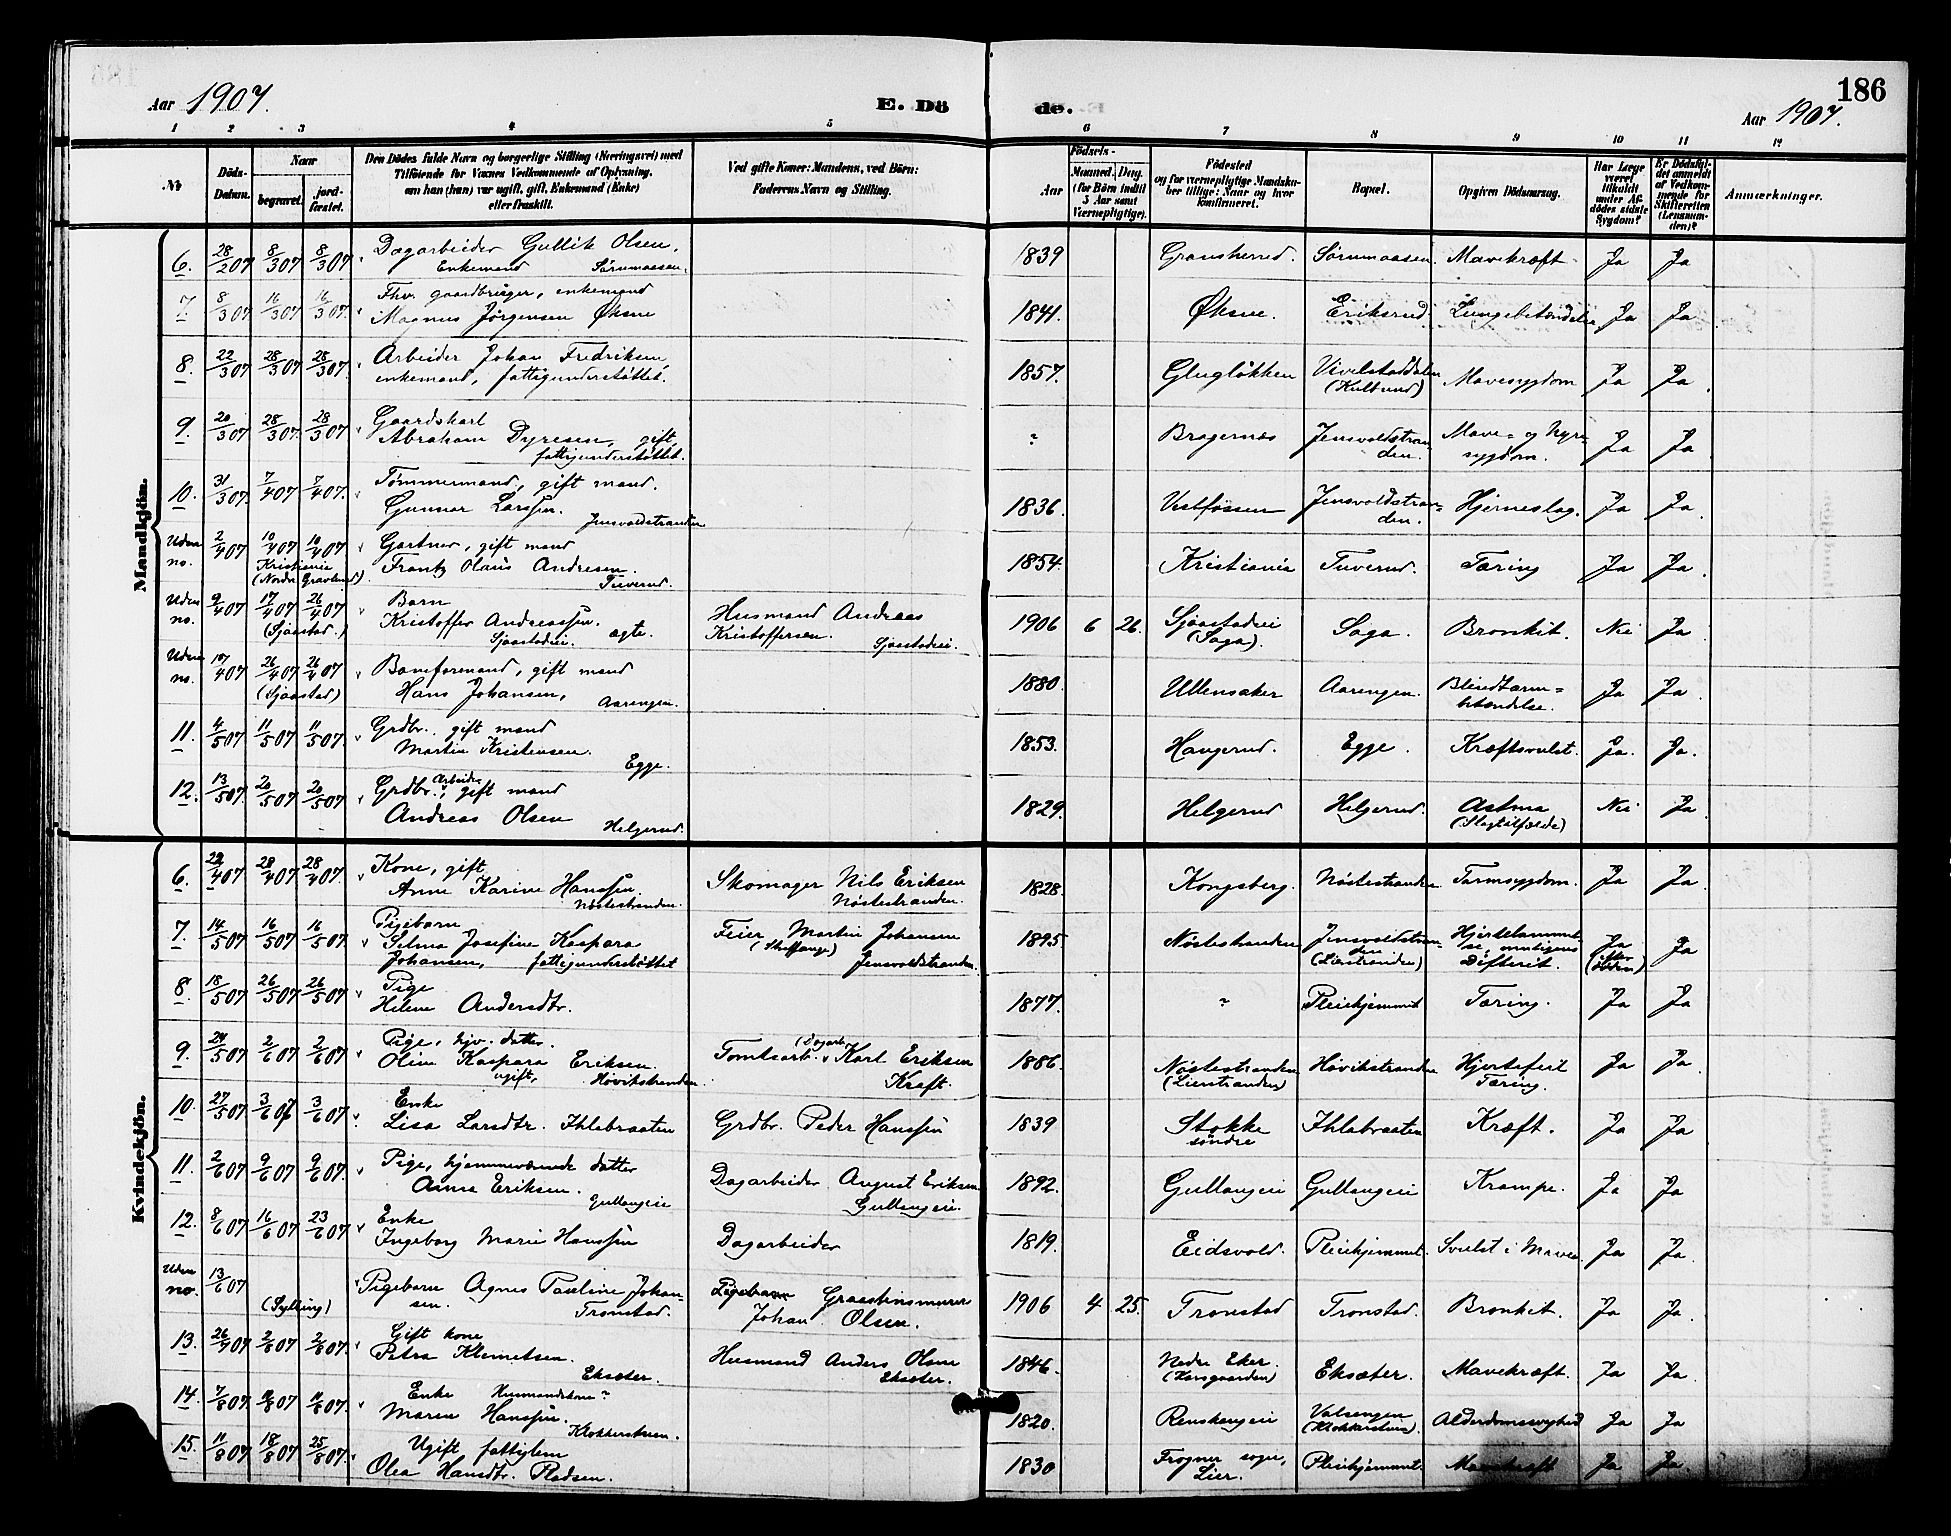 186
Aar 1907.
E. Dö
de.
Aar 1907.
1 2 3 4 5 6 7 8 9 10 11 12
No
Döds-Datum.
Naar
begravet.
jordfæstet.
Den Dödes fulde Navn og borgerlige Stilling (Næringsvei) med Tilföiende for Voxnes Vedkommende af Oplysning, om han (hun) var ugift, gift, Enkemand (Enke) eller fraskilt.
Ved gifte Koner: Mandens, ved Börn: Faderens Navn og Stilling.
Födsels-
Aar
Maaned. Dag.
(for Börn indtil 5 Aar samt Værnepligtige).
Födested og for værnepligtige Mandskaber tillige: Naar og hvor konfirmeret.
Bopæl.
Opgiven Dödsaarsag.
Har Læge været tilkaldt under Afdödes sidste Sygdom?
Er Dödsfaldet anmeldt af Vedkommende for Skifteretten (Lensmanden)?
Anmærkninger.
Mandkjön.
6. 28/2 07 8/3 07 8/3 07 Dagarbeider Gullik Olsen, Enkemand Sørumaasen. 1839 Gransherred. Sørumaasen. Mavekræft Ja Ja
7. 8/3 07 16/3 07 16/3 07. Fhv. gaardbruger, enkemand Magnus Jørgensen Øksne 1841. Øksne. Eriksrud. Lungebetændelse Ja Ja.
8. 22/3 07 28/3 07 28/3 07. Arbeider Johan Fredriksen enkemand, fattigunderstøttet. 1857. Glugløkken Vivelstaddalen (Kultsrud) Mavesygdom Ja Ja.
9. 20/3 07 28/3 07. 28/3 07 Gaardskarl Abraham Dyresen, gift, fattigunderstøttet. ? Bragernæs Jensvoldstranden. Mave- og Nyresygdom. Ja Ja
10. 31/3 07 7/4 07 7/4 07. Tømmermand, gift mand. Gunnar Larssen. Jensvoldstranden 1836. Vestfossen Jensvoldstranden. Hjerneslag. Ja Ja.
Uden no. 2/4 07 10/4 07 10/4 07 Kristiania (Nordre Gravlund) Gartner, gift mand Frantz Olaus Andresen. Tuverud. 1854. Kristiania Tuverud. Tæring Ja Ja.
Uden no. 9/4 07 17/4 07 26/4 07 (Sjaastad.) Barn Kristoffer Andreassen. ægte. Sjaastadeie. Husmand Andreas Kristoffersen. Sjaastadeie. 1906 6 26. Sjaastadeie (Saga). Saga. Bronkit. Nei Ja.
Uden no. 17/4 07 26/4 07 26/4 07 (Sjaastad) Baneformand, gift mand Hans Johansen, Aarengen. 1880 Ullensaker Aarengen. Blindtarmbetændelse. Ja Ja.
11. 4/5 07 11/5 07 11/5 07. Grdbr. gift mand Martin Kristensen. Egge. 1853. Haugerud. Egge. Kræftsvulst. Ja. Ja.
12. 13/5 07. 20/5 07 20/5 07 Grdbr. Arbeider, gift mand Andreas Olsen Helgerud. 1829. Helgerud Helgerud. Astma (Slagtilfælde) Nei Ja
Kvindekjön.
6. /4 07 28/4 07 28/4 07. Kone, gift Anne Karine Hanssen. Nøstestranden. Skomager Nils Eriksen Nøstestranden. 1828. Kongsberg. Nøstestranden Tarmsygdom. Ja Ja.
7. 14/5 07 16/5 07 16/5 07 Pigebarn Selma Josefine Kaspara Johansen, fattigunderstøttet Feier Martin Johansen Jensvoldstranden. 1895 Nøstestranden Jensvoldstranden (Lierstranden) Hjertelammelse, Difterit. Ja (efter døden) Ja
8. 18/5 07 26/5 07 26/5 07 Pige Helene Andersdtr. 1877. ? Pleiehjemmet Tæring. Ja Ja
9. 24/5 07 2/6 07 2/6 07 Pige, hjv. datter. Oline Kaspara Eriksen. ugift, Høvikstranden Tomtearb. (Dagarb.) Karl Eriksen Kraft. 1886 Nøstestranden (Lierstranden) Høvikstranden Hjertefeil Tæring. Ja Ja.
10. 27/5 07 3/6 07 3/6 07. Enke Lisa Larsdtr. Ihlebraaten Grdbr. Peder Hanssen 1839 Stokke søndre Ihlebraaten Kræft. Ja Ja
11. 2/6 07 9/6 07 9/6 07. Pige, hjemmeværende datter Anna Eriksen. Gullaugeie Dagarbeider August Eriksen Gullaugeie. 1892. Gullaugeie Gullaugeie Krampe. Ja Ja
12. 8/6 07 16/6 07 23/6 07 Enke Ingeborg Marie Hanssen Dagarbeider 1819. Eidsvold. Pleiehjemmet. Svulst i Maven Ja Ja.
Uden no. 13/6 07 (Sylling) Pigebarn Agnes Pauline Johansen. Tronstad Pigebarn Graastensmurer Johan Olsen. 1906 4 25. Tronstad Tronstad Bronkit. Ja Ja.
13. 26/7 07 2/8 07 2/8 07. Gift kone Petra Klemetsen. Eksæter. Husmand Anders Olsen Eksæter. 1846. Nedre Eker. Eksæter. Mavekræft. Ja Ja.
14. 7/8 07 /8 07 11/8 07. Enke Husmandskone? Maren Hanssen. Klokkerstuen. 1820. Renskougeie Valsengen (Klokkerstuen) Alderdomssvaghed Ja Ja
15. 11/8 07 18/8 07 25/8 07. Ugift, fattiglem Olea Hansdtr. Pladsen. 1830 Frogner sogn, Lier. Pleiehjemmet. Mavekræft Ja Ja.